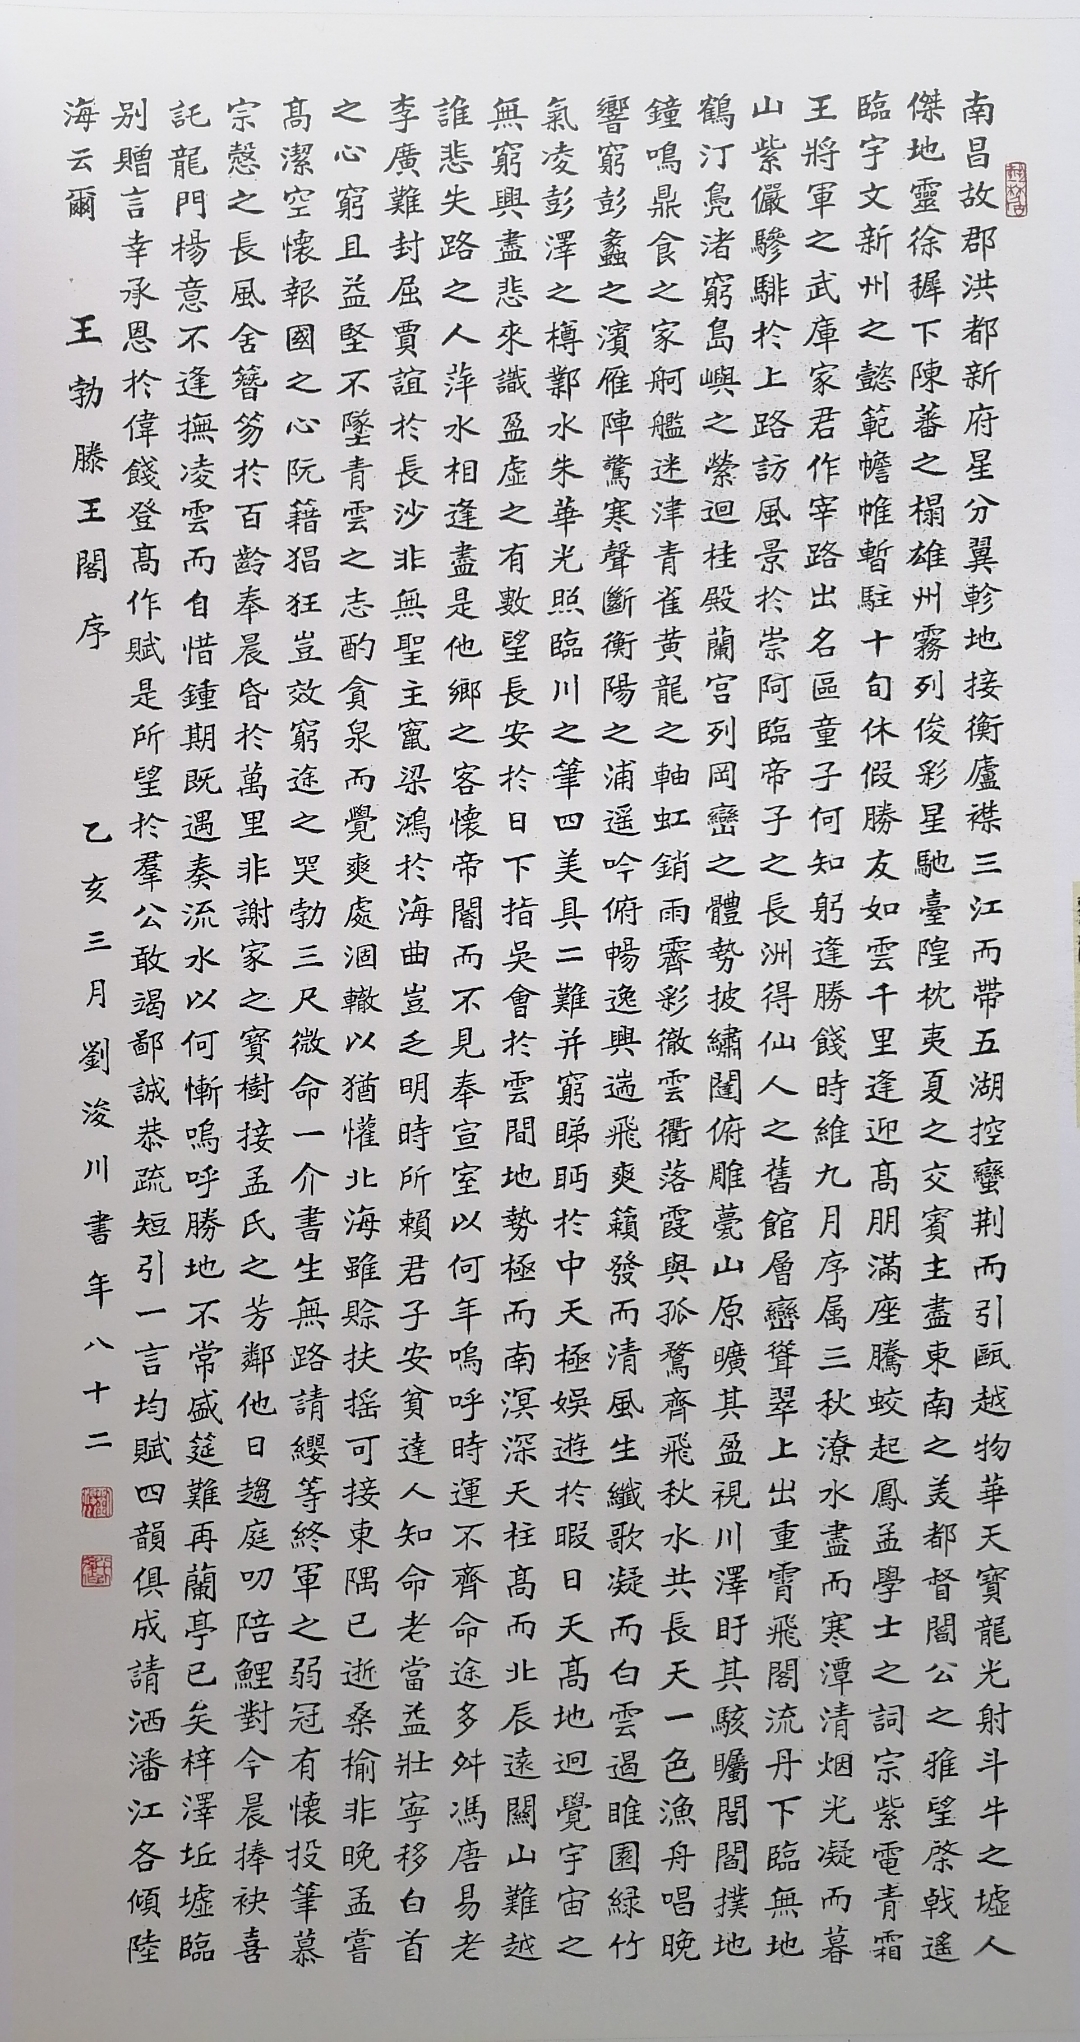 南昌故郡洪都新府星分翼軫地接衡廬襟三江而帶五湖控蠻荊而引甌越物華天寶龍光射斗牛之墟人
傑地靈徐穉下陳蕃之榻雄州霧列俊彩星馳臺隍枕夷夏之交賓主盡東南之美都督閻公之雅望棨戟遙
臨宇文新州之懿範幨帷暫駐十旬休假勝友如雲千里逢迎高朋滿座騰蛟起鳳孟學士之詞宗紫電青霜
王將軍之武庫家君作宰路出名區童子何知躬逢勝餞時維九月序属三秋潦水盡而寒潭清烟光凝而暮
山紫儼驂騑於上路訪風景於崇阿臨帝子之長洲得仙人之舊館層巒聳翠上出重霄飛閣流丹下臨無地
鶴汀鳧渚窮島嶼之縈迴桂殿蘭宮列岡巒之體勢披繡闥俯雕甍山原曠其盈視川澤盱其駭矚閭閻撲地
鐘鳴鼎食之家舸艦迷津青雀黃龍之軸虹銷雨霽彩徹雲衢落霞與孤鶩齊飛秋水共長天一色漁舟唱晚
響窮彭蠡之濱雁陣驚寒聲斷衡陽之浦遥吟俯暢逸興遄飛爽籟發而清風生纖歌凝而白雲遏睢園緑竹
氣凌彭澤之樽鄴水朱華光照臨川之筆四美具二難并窮睇眄於中天極娛遊於暇日天高地迥覺宇宙之
無窮興盡悲來識盈虛之有數望長安於日下指吳會於雲間地勢極而南溟深天柱高而北辰遠關山難越
誰悲失路之人萍水相逢盡是他鄉之客懷帝閽而不見奉宣室以何年嗚呼時運不齊命途多舛馮唐易老
李廣難封屈賈誼於長沙非無聖主竄梁鴻於海曲豈乏明時所賴君子安貧達人知命老當益壯寧移白首
之心窮且益堅不墜青雲之志酌貪泉而覺爽處涸轍以猶懽北海雖賒扶搖可接東隅已逝桑榆非晚孟嘗
高潔空懷報國之心阮籍猖狂豈效窮途之哭勃三尺微命一介書生無路請纓等終軍之弱冠有懷投筆慕
宗愨之長風舍簪笏於百齡奉晨昏於萬里非謝家之寶樹接孟氏之芳鄰他日趨庭叨陪鯉對今晨捧袂喜
託龍門楊意不逢撫凌雲而自惜鍾期既遇奏流水以何慚嗚呼勝地不常盛筵難再蘭亭已矣梓澤坵墟臨
別贈言幸承恩於偉餞登高作賦是所望於羣公敢竭鄙誠恭疏短引一言均賦四韻俱成請洒潘江各傾陸
海云爾 王勃滕王閣序 乙亥三月劉浚川書年八十二